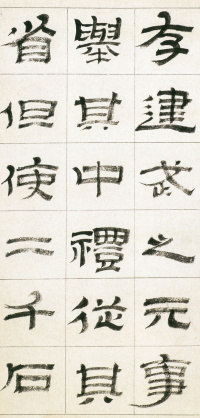 存建武之元事
舉其中禮從其
省但使二千石